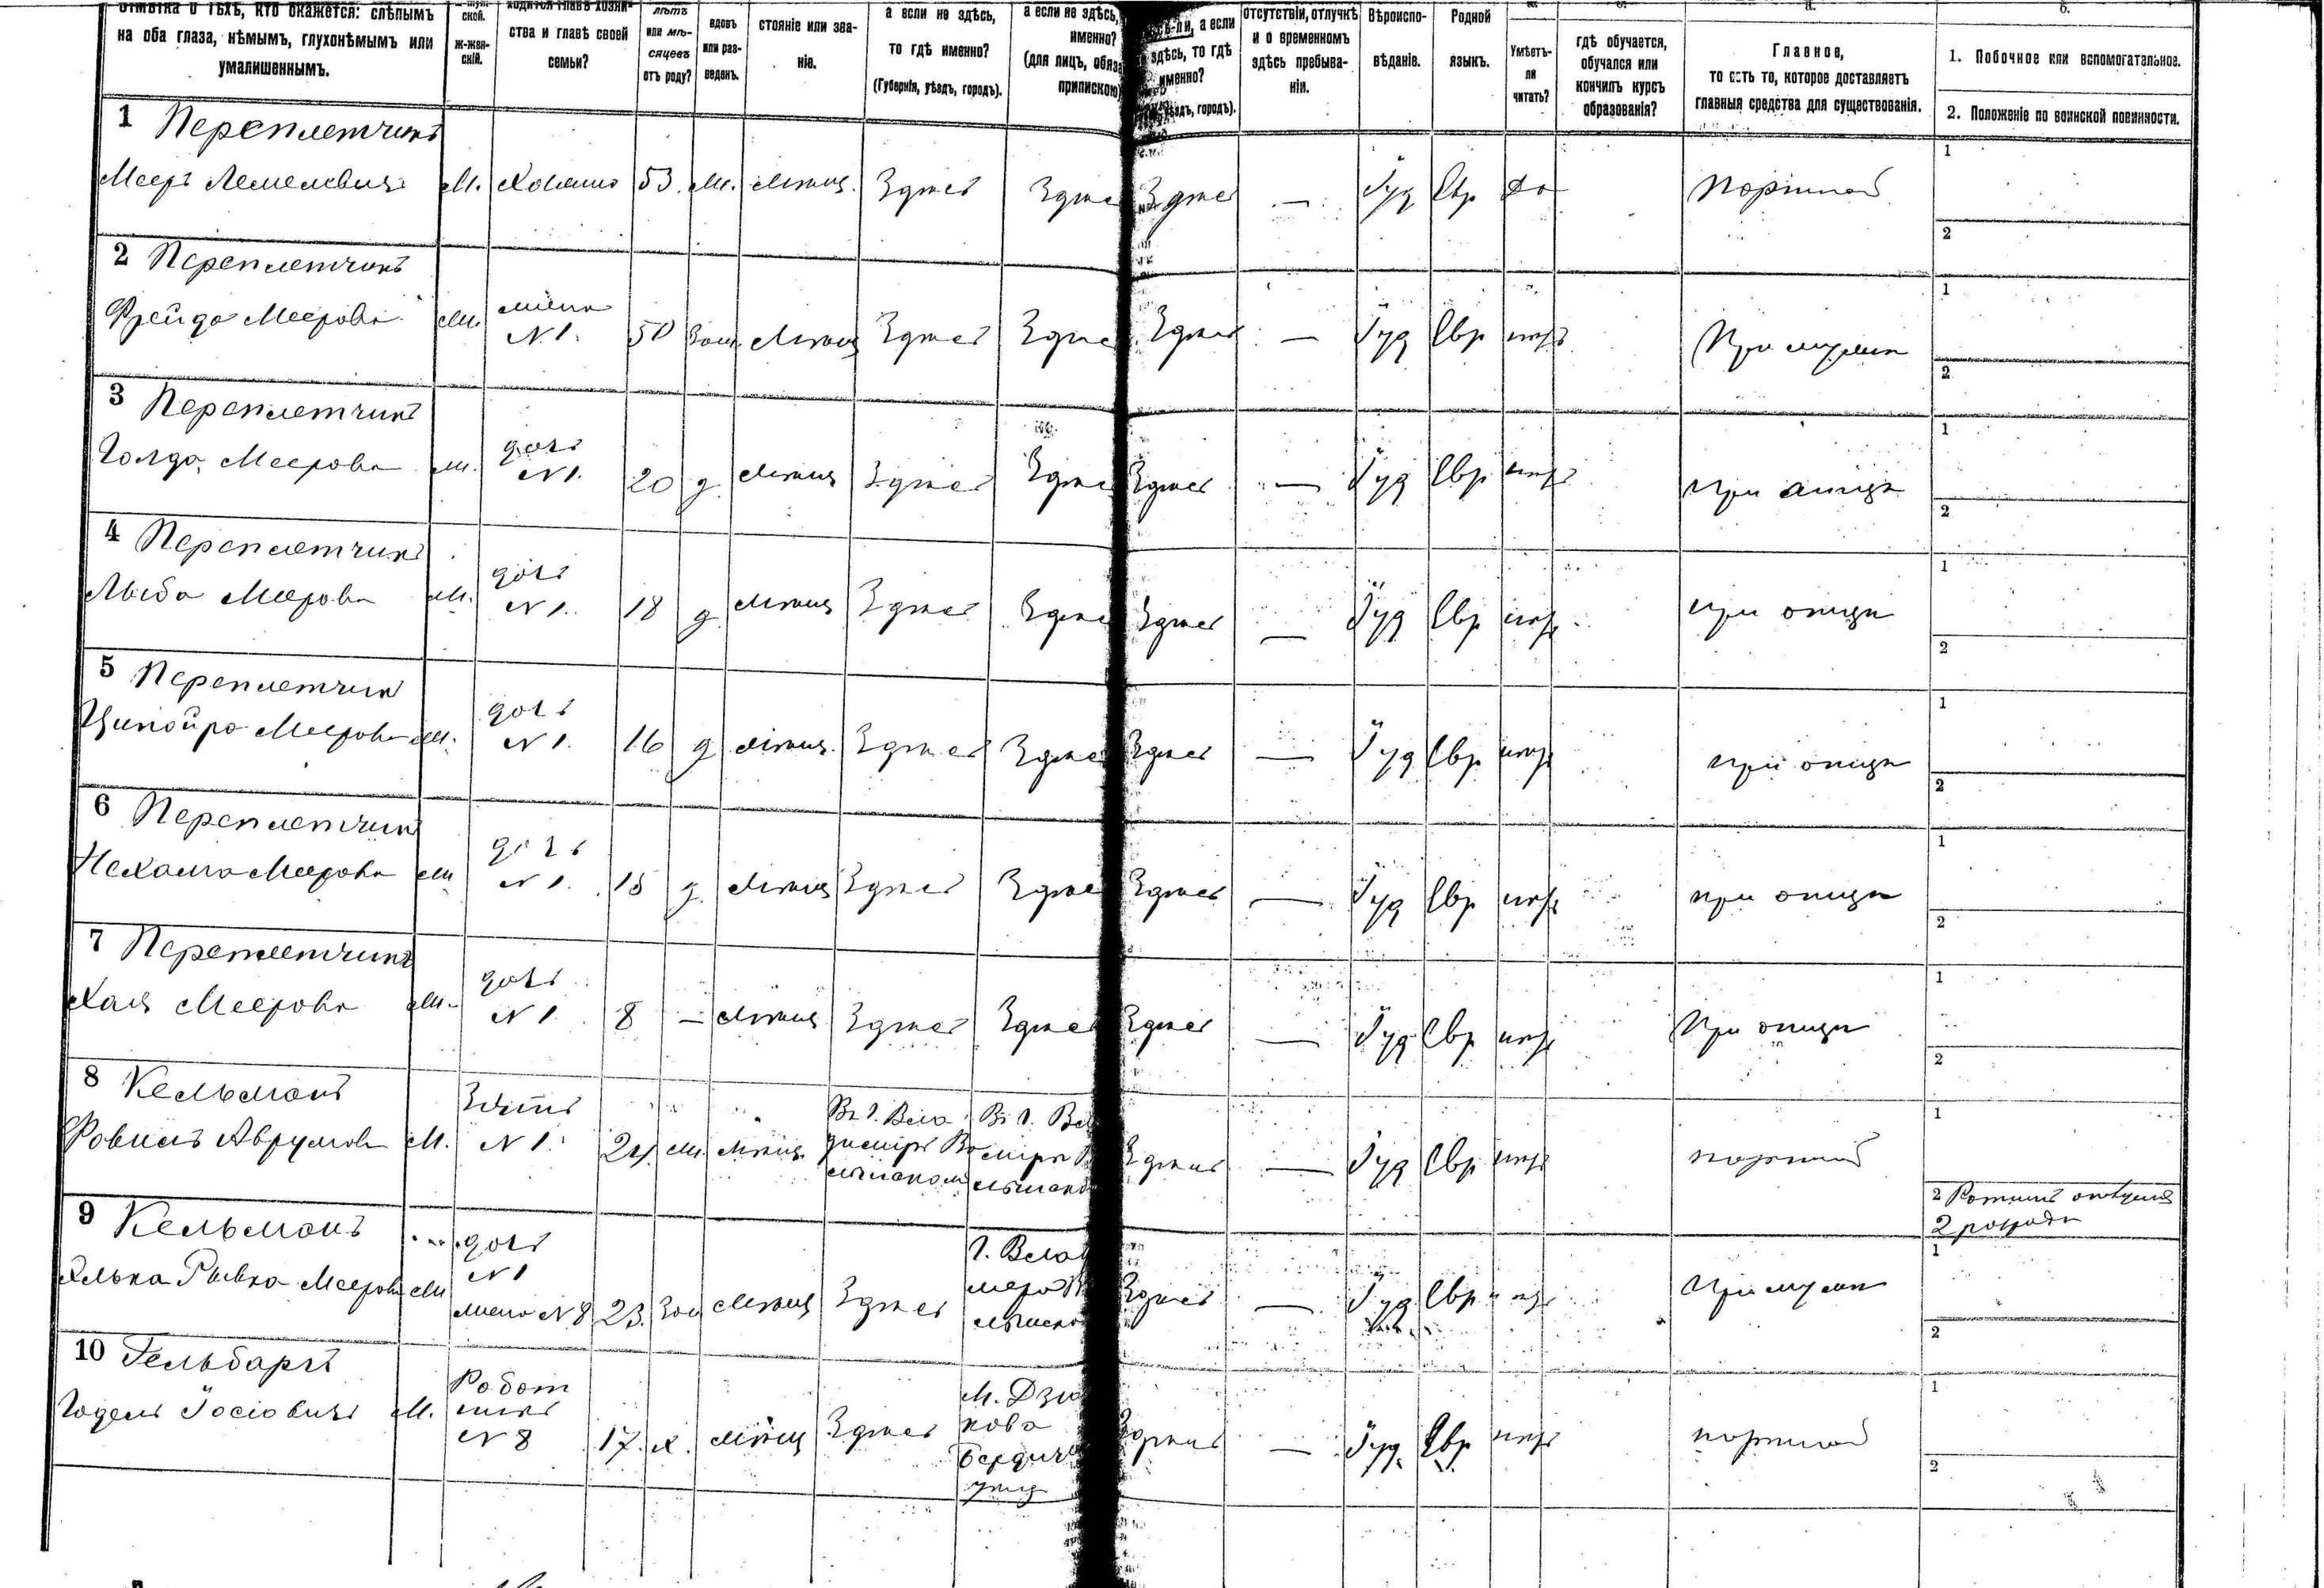 отмѣтка о тѣхъ, кто окажется: слѣпымъ
на оба глаза, нѣмымъ, глухонѣмымъ или
умалишеннымъ.
ской.
ж-жен-
скій.
ства и главѣ своей
семьи?
лѣтъ
или мѣ-
сяцевъ
отъ роду?
вдовъ
или раз-
веденъ.
стояніе или зва-
ніе.
а если не здѣсь,
то гдѣ именно?
(Губернія, уѣздъ, городъ).
а если не здѣсь,
именно?
(для лицъ, обяз
припискою)
а если
здѣсь, то гдѣ
именно?
уѣздъ, городъ).
отсутствіи, отлучкѣ
и о временномъ
здѣсь пребыва-
ніи.
Вѣроиспо-
вѣданіе.
Родной
языкъ.
Умѣетъ-
ли
читать?
гдѣ обучается,
обучался или
кончилъ курсъ
образованія?
Главное,
то есть то, которое доставляетъ
главныя средства для существованія.
1. Побочное или вспомогательное.
2. Положеніе по воинской повинности.
1 Переплетчикъ
Мееръ Лемелевичъ М. Хозяинъ 53. М. Мѣщ. Здѣсь Здѣсь Здѣсь — Іуд Евр да Портной
1
2
2 Переплетчикъ
Фрейда Меерова ж. жена
N 1. 50 Зам. Мѣщ Здѣсь Здѣсь Здѣсь — Іуд Евр нѣтъ При мужѣ
1
2
3 Переплетчикъ
Голда Меерова ж. дочь
N 1. 20 д. Мѣщ Здѣсь Здѣсь Здѣсь — Іуд Евр нѣтъ при отцѣ
1
2
4 Переплетчикъ
Меерова ж. дочь
N 1. 18 д. Мѣщ Здѣсь Здѣсь Здѣсь — Іуд Евр нѣтъ при отцѣ
1
2
5 Переплетчик
Ципойра Меерова ж. дочь
N 1. 16 д Мѣщ. Здѣсь Здѣсь Здѣсь — Іуд Евр нѣтъ при отцѣ
1
2
6 Переплетчик
Нехама Меерова ж дочь
N 1. 15 д. Мѣщ Здѣсь Здѣсь Здѣсь — Іуд Евр нѣтъ при отцѣ
1
2
7 Переплетчикъ
Хая Меерова ж. дочь
N 1. 8 — Мѣщ Здѣсь Здѣсь Здѣсь — Іуд Евр нѣтъ При отцѣ
1
2
8 Кельманъ
Фовиль Аврумов М. Зять
N 1. 24. ж. Мѣщ. Здѣсь — Іуд Евр нѣтъ портной
1
2 Ратникъ ополченія
2 разряда
9 Кельманъ
Рывка Меерова ж дочь
N 1
жена N 8 23. Зам Мѣщ Здѣсь Здѣсь — Іуд Евр нѣтъ При мужѣ
1
2
10 Гельбаргъ
Годель Іосіовичъ М. Работ
никъ
N 8 17. х. Мѣщ Здѣсь М. Дзю
кова
Бердич
уѣзд
Здѣсь — Іуд. Евр нѣтъ портной
1
2